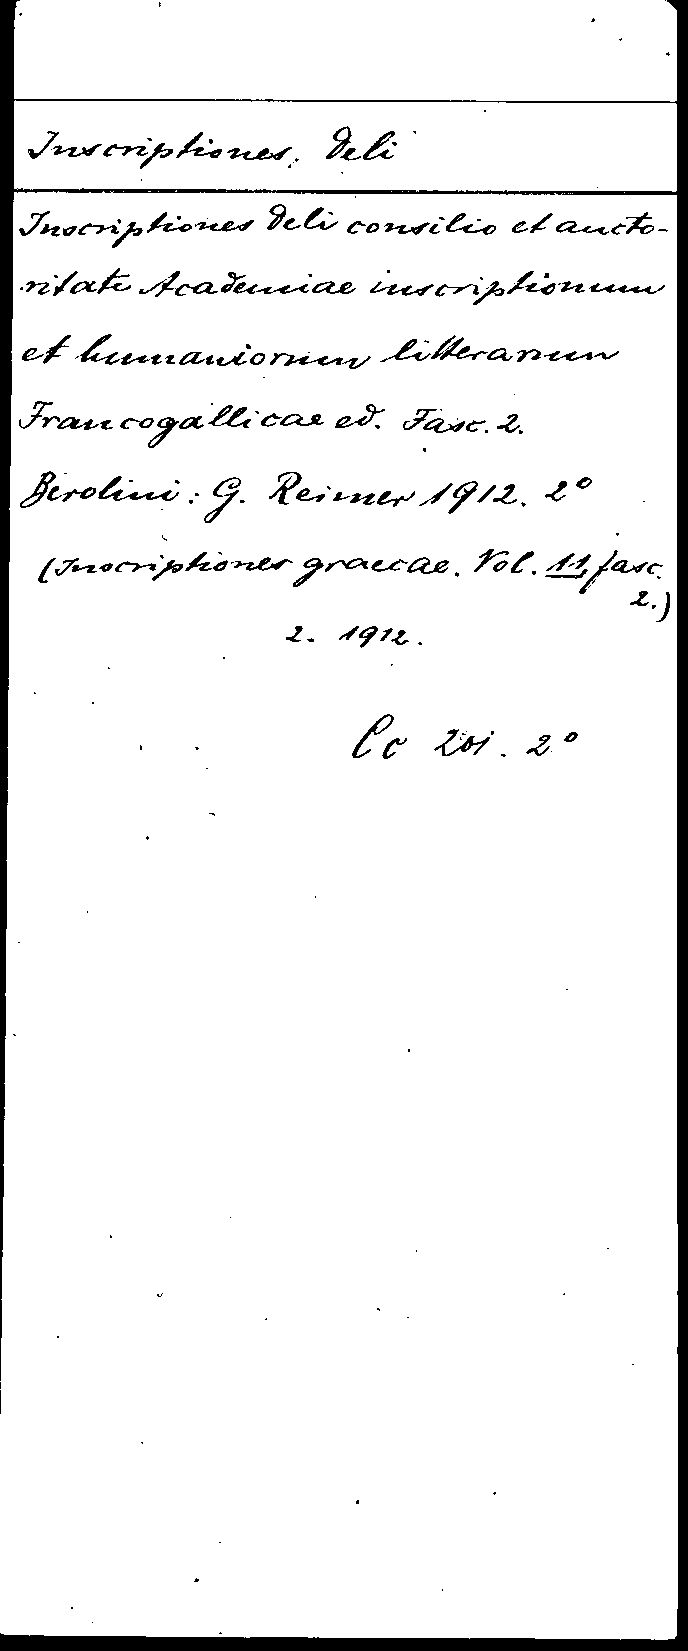 Inscriptiones, Deli
Inscriptiones Deli consilio et aucto-
ritate Academiae inscriptionum
et humaniorum litterarum
Francogallicae ed. Fasc. 2.
Berolini: G. Reimer 1912. 2°
(Inscriptiones graecae. Vol. 11, fasc.
2.)
2. 1912.
Cc 201. 2°